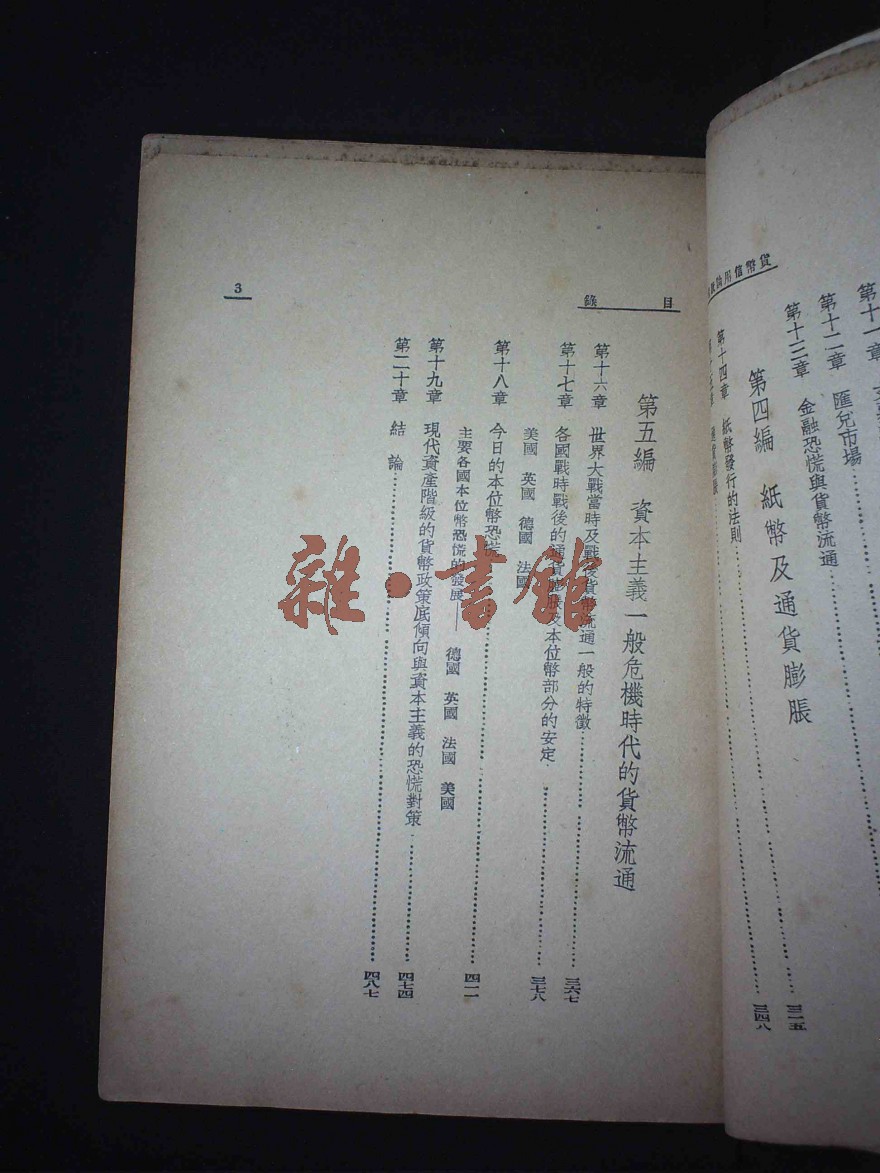 第十二章　匯兌市場
第十三章　金融恐慌與貨幣流通
第四編　紙幣及通貨膨脹
第十四章　紙幣發行的法則…………三一五
三四八
目錄
3
第五編　資本主義一般危機時代的貨幣流通
第十六章　世界大戰當時及戰後貨幣流通一般的特徵…………三六七
第十七章　各國戰時戰後的通貨膨脹及本位幣部分的安定…………三七八
美國　英國　德國　法國
第十八章　今日的本位幣恐慌…………四一一
主要各國本位幣恐慌的發展——德國　英國　法國　美國
第十九章　現代資產階級的貨幣政策底傾向與資本主義的恐慌對策…………四七四
第二十章　結論…………四八七
雜·書館